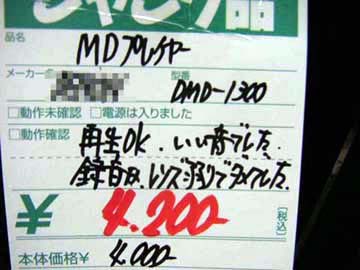 ジャンク品
品名 MDプレイヤー
メーカー 型番 DMD-1300
□動作未確認 □電源は入りました
□動作確認 再生OK．いい音でした．
録音は、レンズ汚れでダメでした．
¥4.200- [税込]
本体価格¥ 4.000-